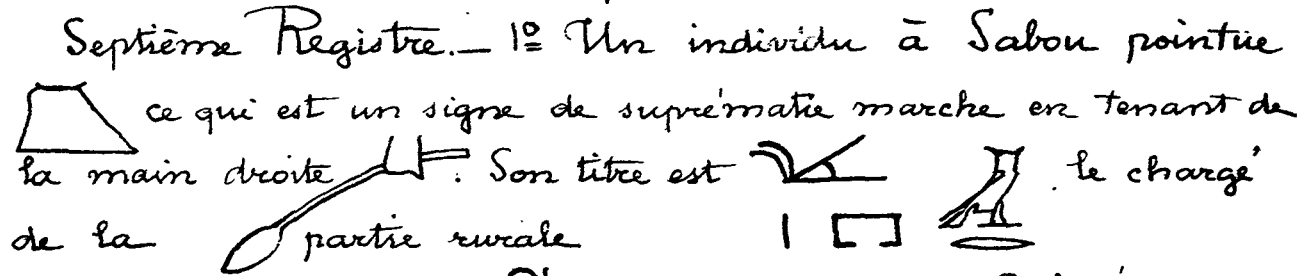 Septième Registre. — 1º Un individu à Sabou pointüe
ce qui est un signe de suprématie marche en tenant de
la main droite . Son titre est le chargé
de la partie rurale